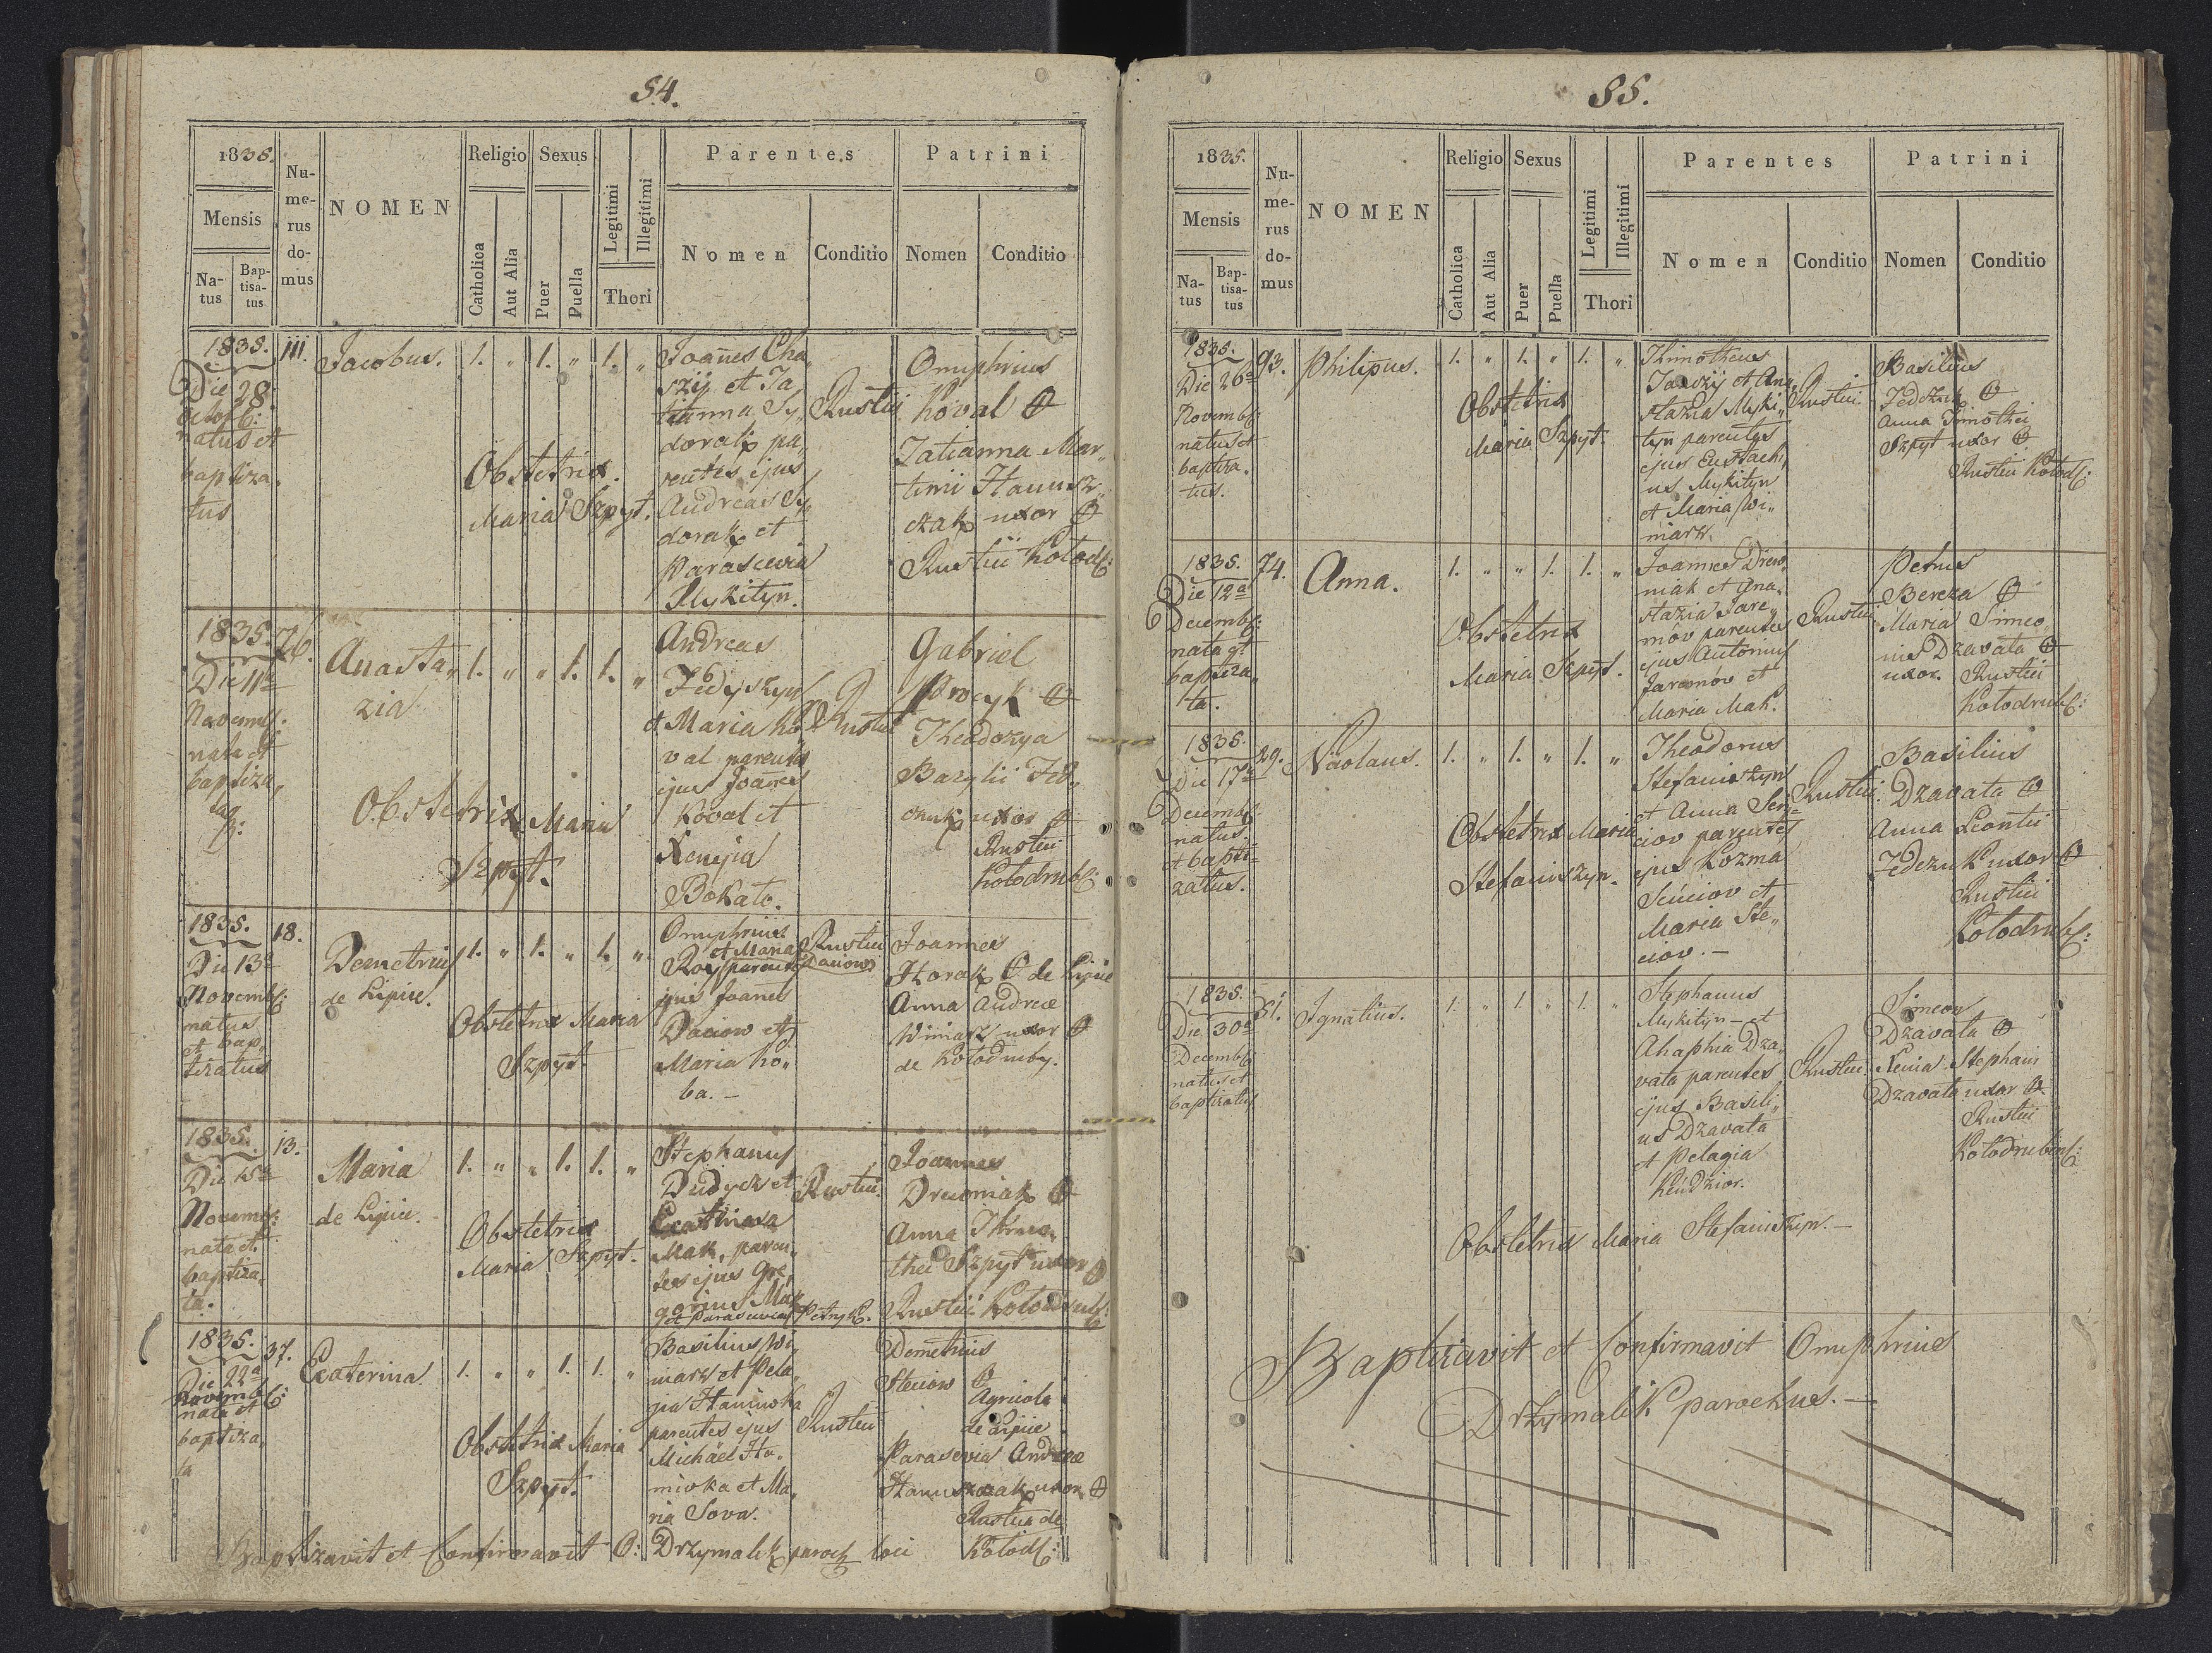 54.
1835.
Mensis
Na-
tus
Bap-
tisa-
tus
Nu-
me-
rus
do-
mus
NOMEN
Religio
Catholica
Aut Alia
Sexus
Puer
Puella
Legitimi
Illegitimi
Thori
Parentes
Nomen
Conditio
Patrini
Nomen
Conditio
1835.
Die 28.
natus et
baptiza,
tus
111.
Jacobus.
1. " 1. " 1. "
Obstetrix
Maria Szpyt.
Joannes Cha,
szij et Ta,
tianna Sy,,
dorak pa,,
rentes ejus
Andreas Sy,,
dorak et
Parascevia
Mykityn.
Rustici
Onuphrius
Koval
Tatianna Mar,,
timi Hanusz,,
czak uxor
Rustici Kołod:
1835.
Die 11a
Novemb:
nata et
baptiza,
ta
76.
Anasta,,
zia
1. " " 1. 1. "
Obstetrix Maria
Szpyt.
Andreas
Fedyszyn
et Maria Ko,
val parentes
ejus Joannes
Koval et
Xenija
Bokało.
Rustici
Gabriel
Procyk
Theodozya
Bazylii Fed,
czuk uxor
Rustici
Kołodrub:
1835.
Die 13a
Novemb:
natus
et bap,
tizatus
18.
Demetrius
de Lipice.
1. " 1. " 1. "
Obstetrix Maria
Szpyt
Onuphrius
et Maria
Roy parentes
ejus Joannes
Daciow et
Maria Ko,,
ba. —
Rustici
Daciow
Joannes
Horak de Lipice
Anna Andreæ
Winiarz uxor
de Kołodruby.
1835.
Die 15a
Novemb:
nata et
baptiza,
ta.
13.
Maria
de Lipice.
1. " " 1. 1. "
Obstetrix
Maria Szpyt.
Stephanus
Dudycz et
Ecaterina
Mak, paren,
tes ejus Gre,
gorius Mak
et Parascevia Petryk.
Rustici
Joannes
Drewniak
Anna Thimo,
thei Szpyt uxor
Rustici Kołodrub:
1835.
Die 22a
Novemb:
nata et
baptiza,
ta
37.
Ecaterina.
1. " " 1. 1. "
Obstetrix Maria
Szpyt.
Basilius Wi,
niarz et Pela,
gia Haniwka
parentes ejus
Michael Ha,
niwka et Ma,
ria Sova.
Rustici
Demetrius
Steciow
Agricola
de Lipice
Parasevia Andreæ
Hanuszczak uxor
Rustici de
Kołod:
Baptizavit et Confirmavit O: Drzymalik paroch loci
55.
1835.
Mensis
Na-
tus
Bap-
tisa-
tus
Nu-
me-
rus
do-
mus
NOMEN
Religio
Catholica
Aut Alia
Sexus
Puer
Puella
Legitimi
Illegitimi
Thori
Parentes
Nomen
Conditio
Patrini
Nomen
Conditio
1835.
Die 26a
Novemb:
natus et
baptiza,
tus.
93.
Philipus.
1. " 1. " 1. "
Obstetrix
Maria Szpyt.
Thimotheus
et Ana,
stazia Myki,,
tyn parentes
ejus Eustachi,
us Mykityn
et Maria Wi,,
niarz.
Rustici.
Basilius
Fedczuk
Anna Timothei
Szpyt uxor
Rustici Kołod:
1835.
Die 12a
Decemb:
nata et
baptiza,,
ta.
74.
Anna.
1. " " 1. 1. "
Obstetrix
Maria Szpyt.
Joannes Drew,
niak et Ana,
stazia Jare,,
mov parentes
ejus Antonius
Jaremov et
Maria Mak.
Rustici
Petrus
Bereza
Maria Simeo,
nis Dzavała
uxor. Rustici
Kołodrub:
1835.
Die 17a
Decemb:
natus
et bapti-
zatus.
29.
Nicolaus.
1. " 1. " 1. "
Obstetrix Maria
Stefaniszyn.
Theodorus
Stefaniszyn
et Anna Sen-
ciov parentes
ejus Kozma
Senciov et
Maria Ste,,
ciov. —
Rustici.
Basilius
Dzavała
Anna Leontii
Fedczuk uxor
Rustici
Kołodrub:
1835.
Die 30a
Decemb:
natus et
baptizatus
51.
Ignatius.
1. " 1. " 1. "
Stephanus
Mykityn et
Ahaphia Dza,
vała parentes
ejus Basili,,
us Dzavała
et Pelagia
Kindzior.
Rustici.
Simeon
Dzavała
Xenia Stephani
Dzavała uxor
Rustici
Kołodrubens:
Obstetrix Maria Stefaniszyn. —
Baptizavit et Confirmavit Onuphrius
Drzymalik parochus. —